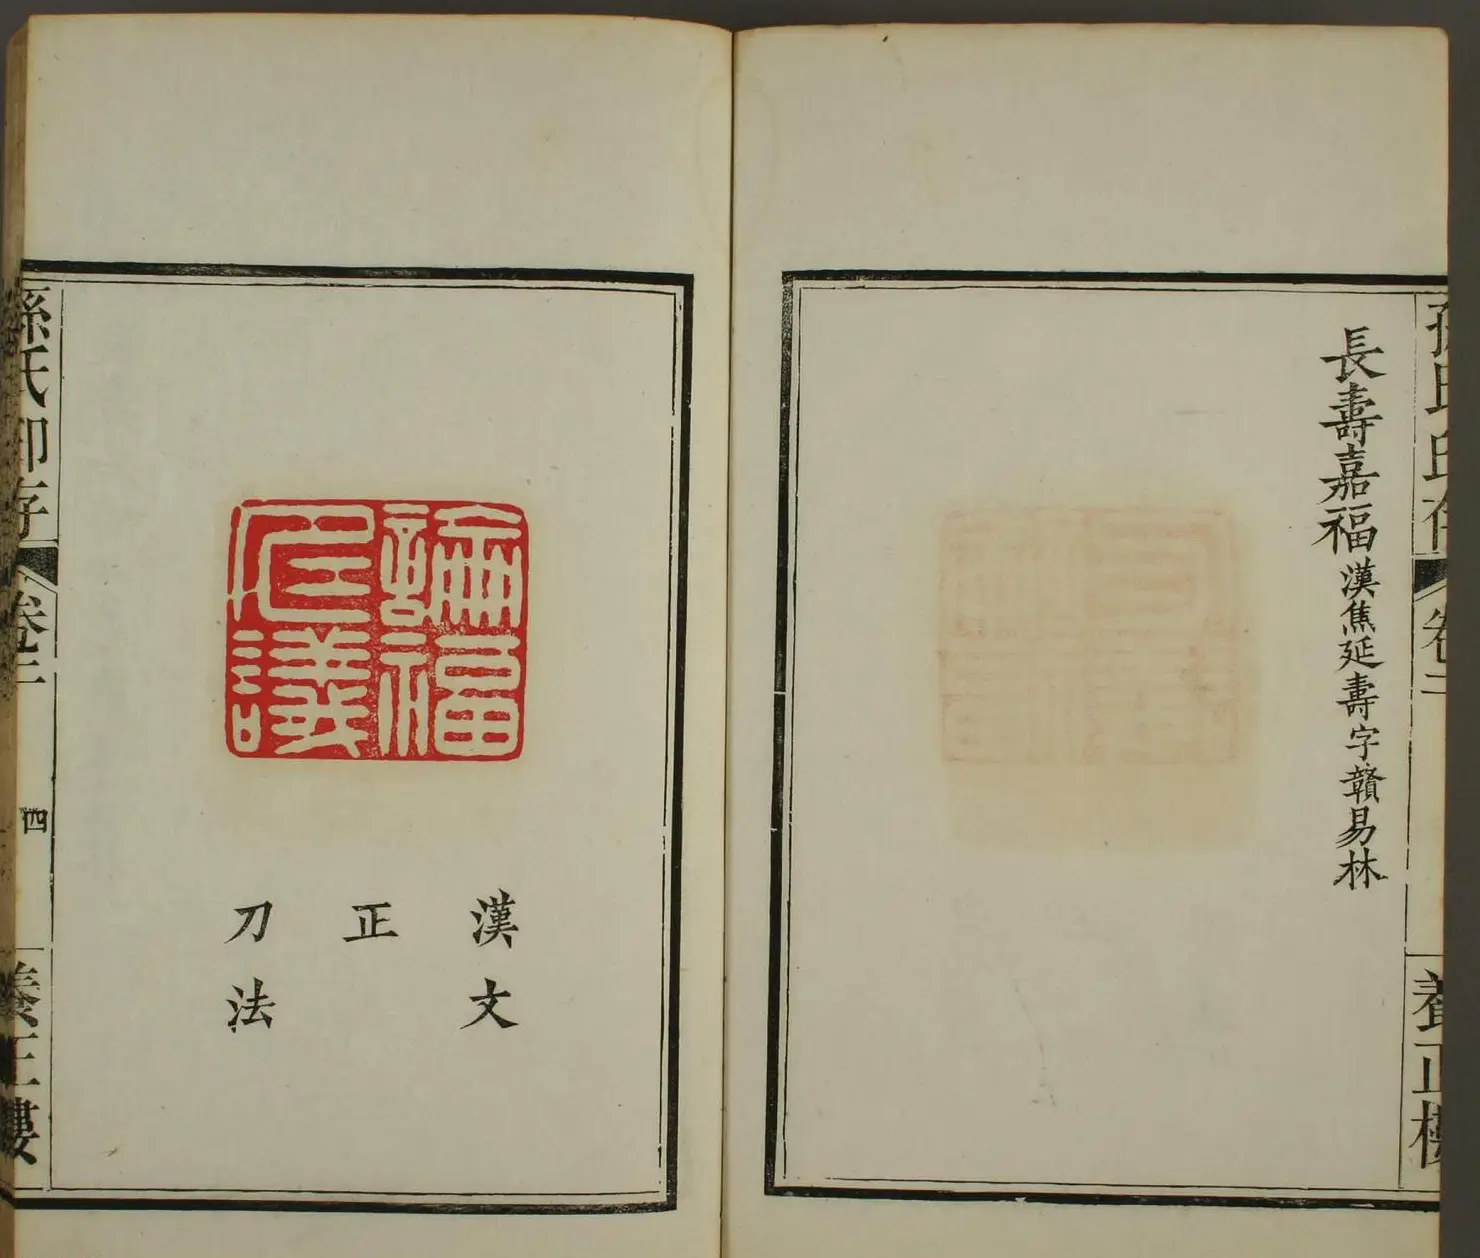 孫氏印存
卷二
養正樓
長壽嘉福 漢焦延壽字贛易林
論福
議
漢文
正
刀法
孫氏印存
卷二
四
養正樓